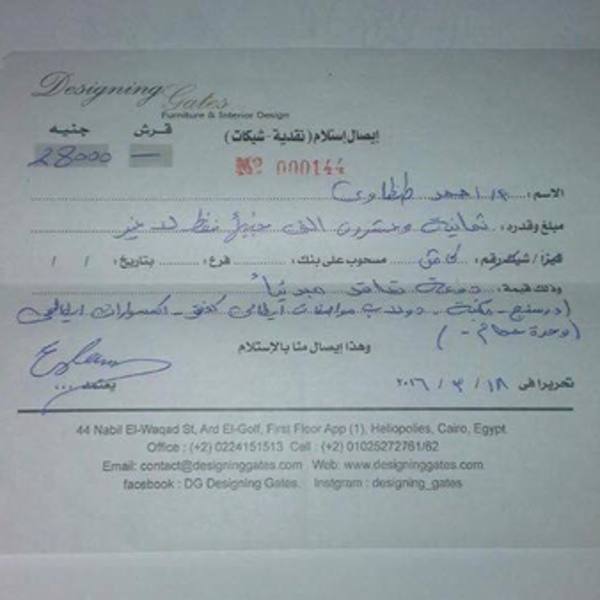 Designing Gates
Furniture & Interior Design
إيصال إستلام (نقدية - شيكات)
قرش جنيه
— 28000
Nº 000144
الاسم: م/ احمد طنطاوى
مبلغ وقدره: ثمانية وعشرون الف جنيهاً فقط لا غير
نقداً / شيك رقم: كاش مسحوب على بنك: فرع: بتاريخ: / /
وذلك قيمة: دفعة تعاقد مبدئياً
مكتبة - دولاب
وحدة حمام
وهذا إيصال منا بالإستلام
تحريرا فى ١٨ / ٣ / ٢٠١٦
يعتمد ...
44 Nabil El-Waqad St, Ard El-Golf, First Floor App (1), Heliopolies, Cairo, Egypt
Office : (+2) 0224151513 Cell : (+2) 01025272761/62
Email: contact@designinggates.com Web: www.designinggates.com
facebook : DG Designing Gates. Instgram : designing_gates